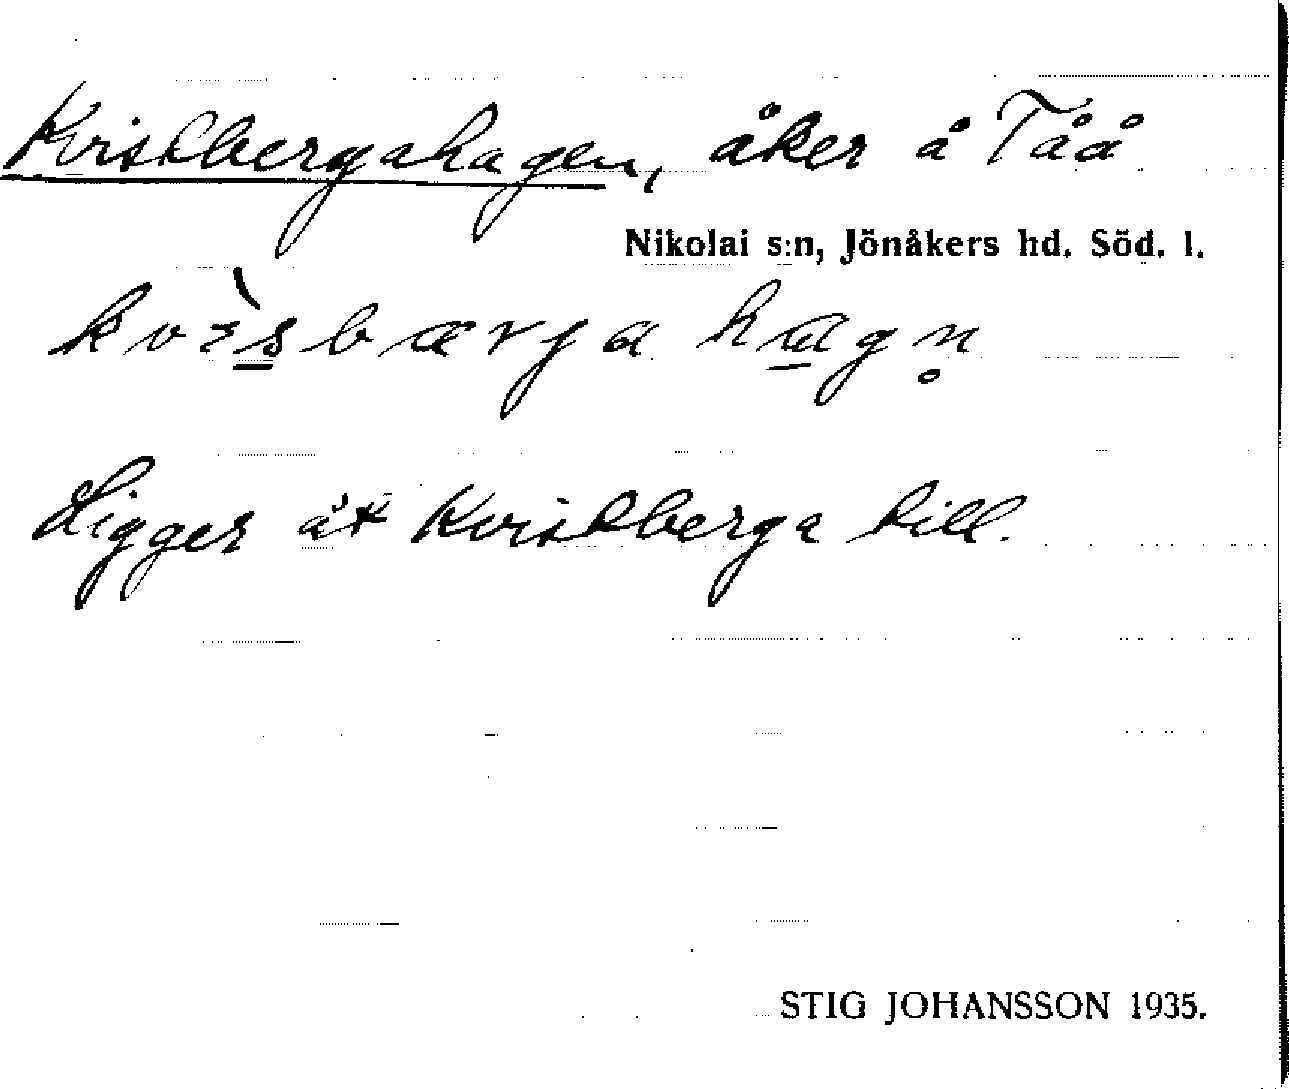 Kvistbergahagen, åker å Tåå
Nikolai s:n, Jönåkers hd. Söd. l.
kvìsbærja hagn̥
Ligger åt Kvistberga till.
STIG JOHANSSON 1935.